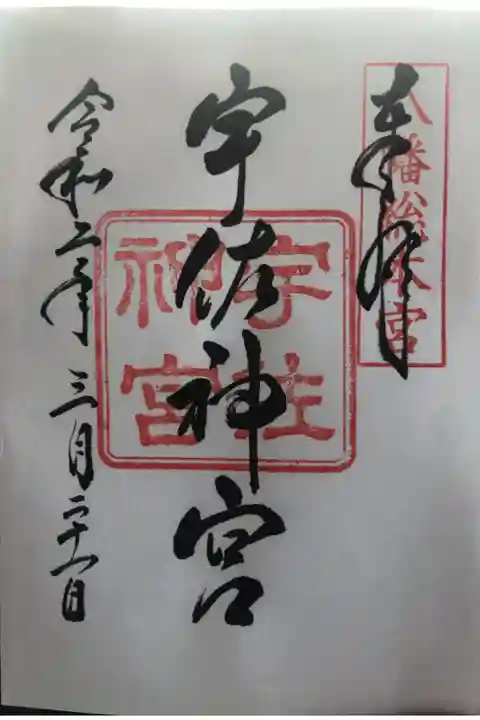 奉拝
八幡総本宮
宇佐神宮
宇佐神宮
令和二年三月二十一日